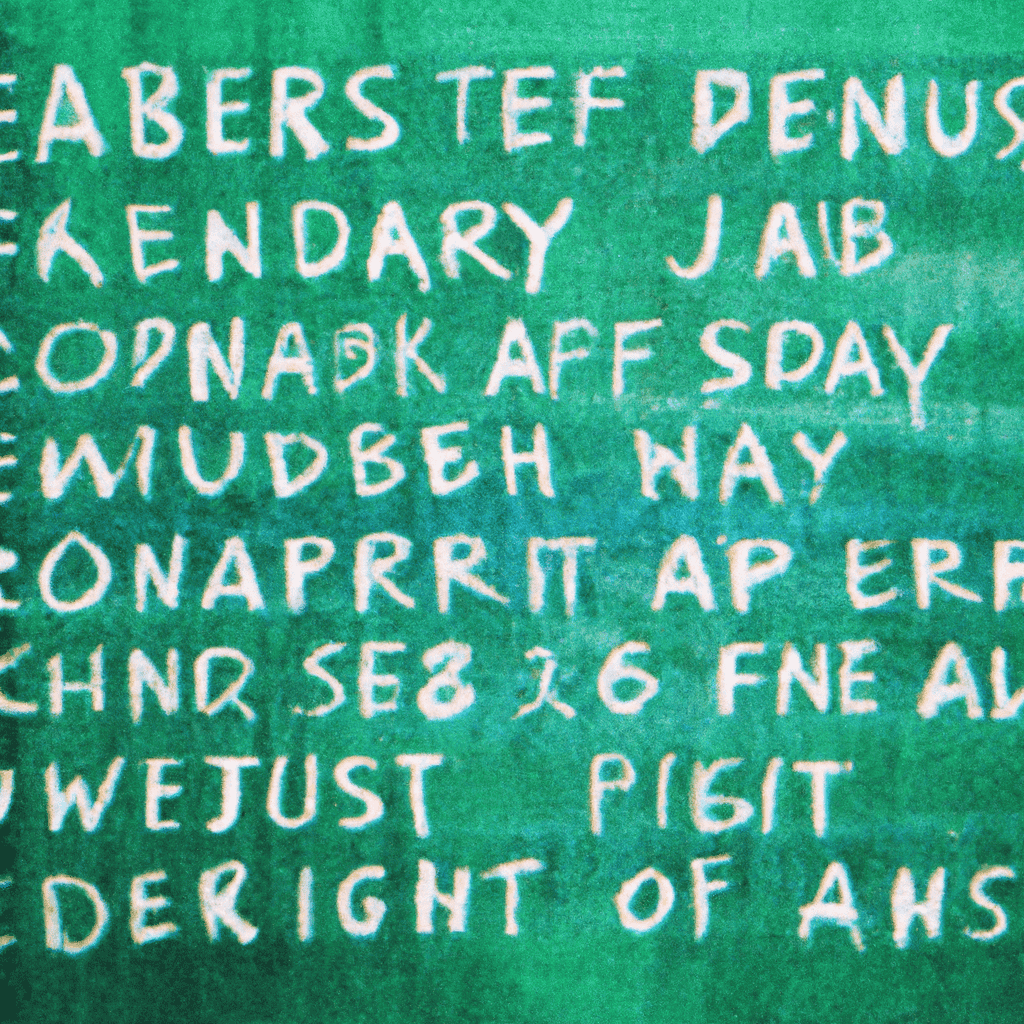 EABERS TEF DENUS
EKENDARY JAB
CODNABK AFF SDAY
EWUDBEH WAY
RONAPRRIT AP ERP
CHNR SE8 26 FNE AL
UWEJUST PIGIT
EDERIGHT OF AHS